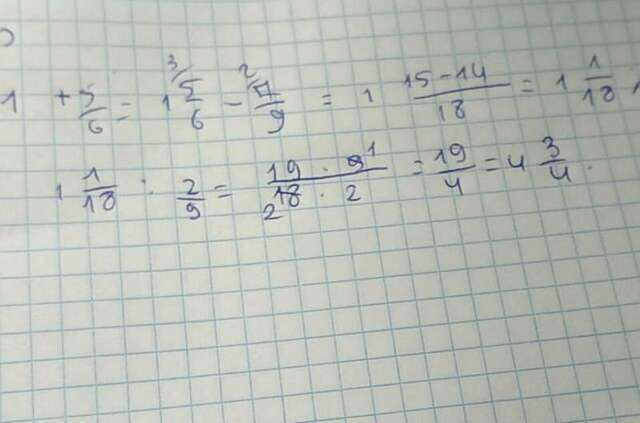 1 + 5/6 = 1 3/ 5/6 - 2/ 7/9 = 1 (15-14)/18 = 1 1/18 ;
1 1/18 : 2/9 = (19 · 9 1)/(18 2 · 2) = 19/4 = 4 3/4 .